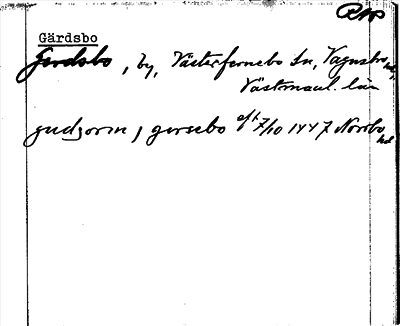 Rtp
Gärdsbo
Gerdsbo, by, Västerfernebo sn, Vagnsbro hd,
Västmanl. län
gudzorm j gersebo eft 7/10 1447 Norrbo hd